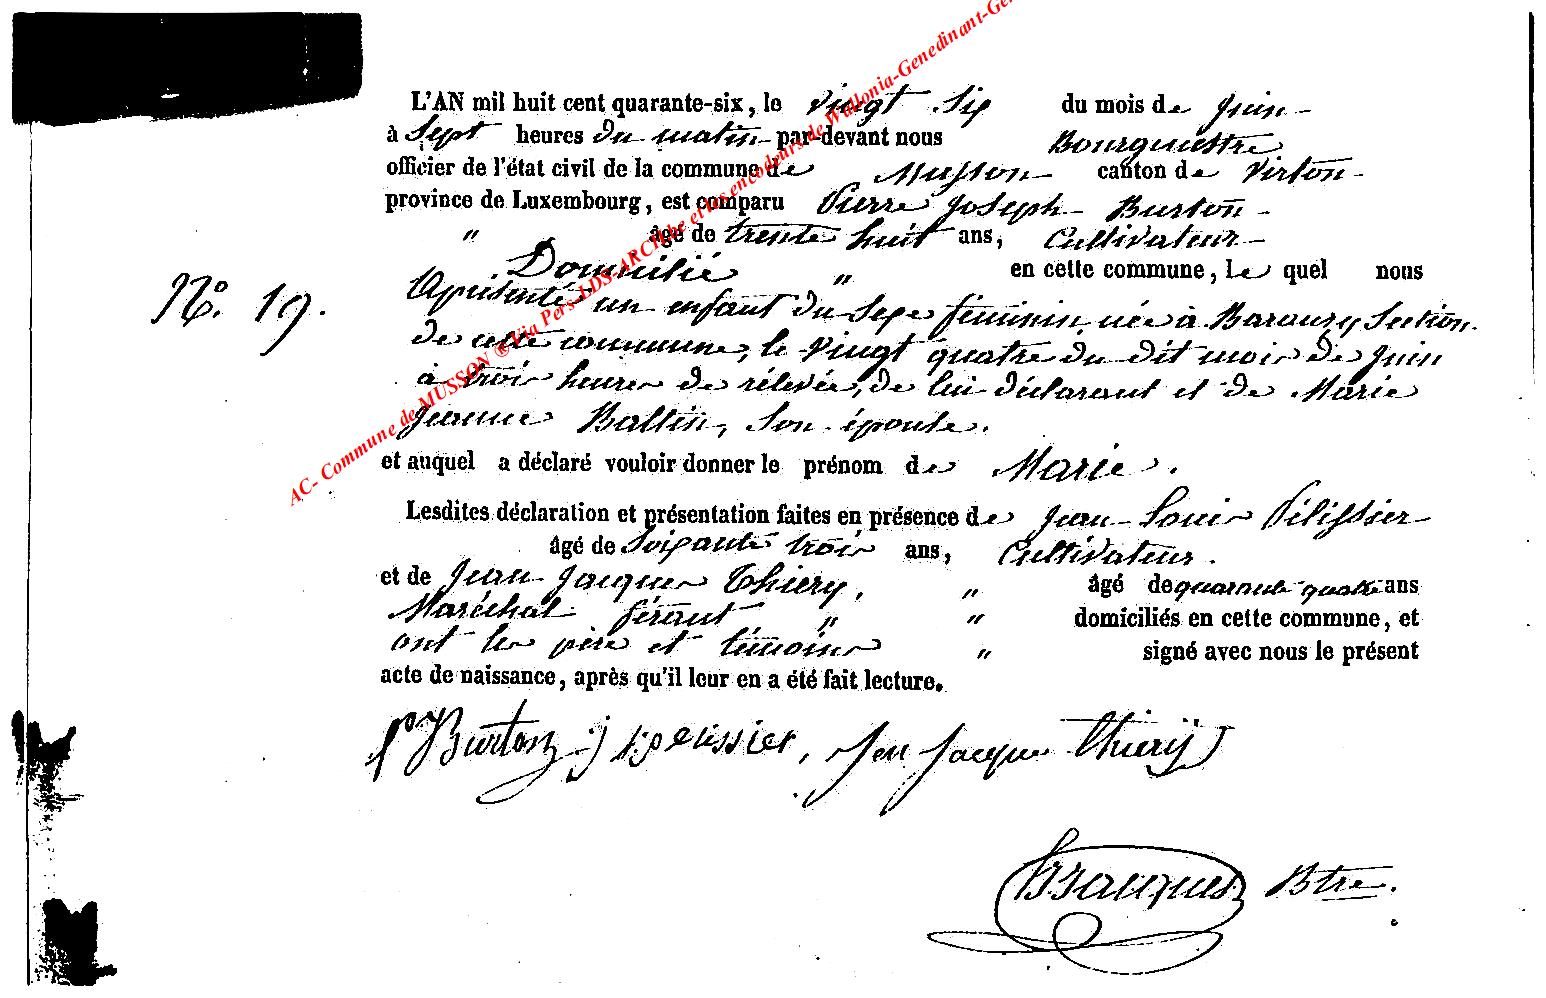 L'AN mil huit cent quarante-six, le vingt Six du mois de juin
à Sept heures du matin par-devant nous Bourgmestre
officier de l'état civil de la commune de Musson canton de Virton
province de Luxembourg, est comparu Pierre Joseph Burton
" âgé de trente huit ans, Cultivateur
Domicilié " en cette commune, le quel nous
N.º 19.
a présenté un enfant du Sexe féminin, née à Baranzy Section
de cette commune, le vingt quatre du dit mois de juin
à trois heures de rélevée, de lui déclarant et de Marie
Jeanne Baltin, Son épouse.
et auquel a déclaré vouloir donner le prénom de Marie.
Lesdites déclaration et présentation faites en présence de Jean Louis Pélissier
âgé de Soixante trois ans, Cultivateur.
et de Jean Jacques Thiery, " âgé de quarante quatre ans
Maréchal férant " " domiciliés en cette commune, et
ont les père et témoins " signé avec nous le présent
acte de naissance, après qu'il leur en a été fait lecture.
P Burton j l pelissier, Jen Jacque Thiery
Btre.
AC- Commune de MUSSON ® Via Pers-LDS-ARCH.be et les encodeurs de Wallonia-Genedinant-Ge